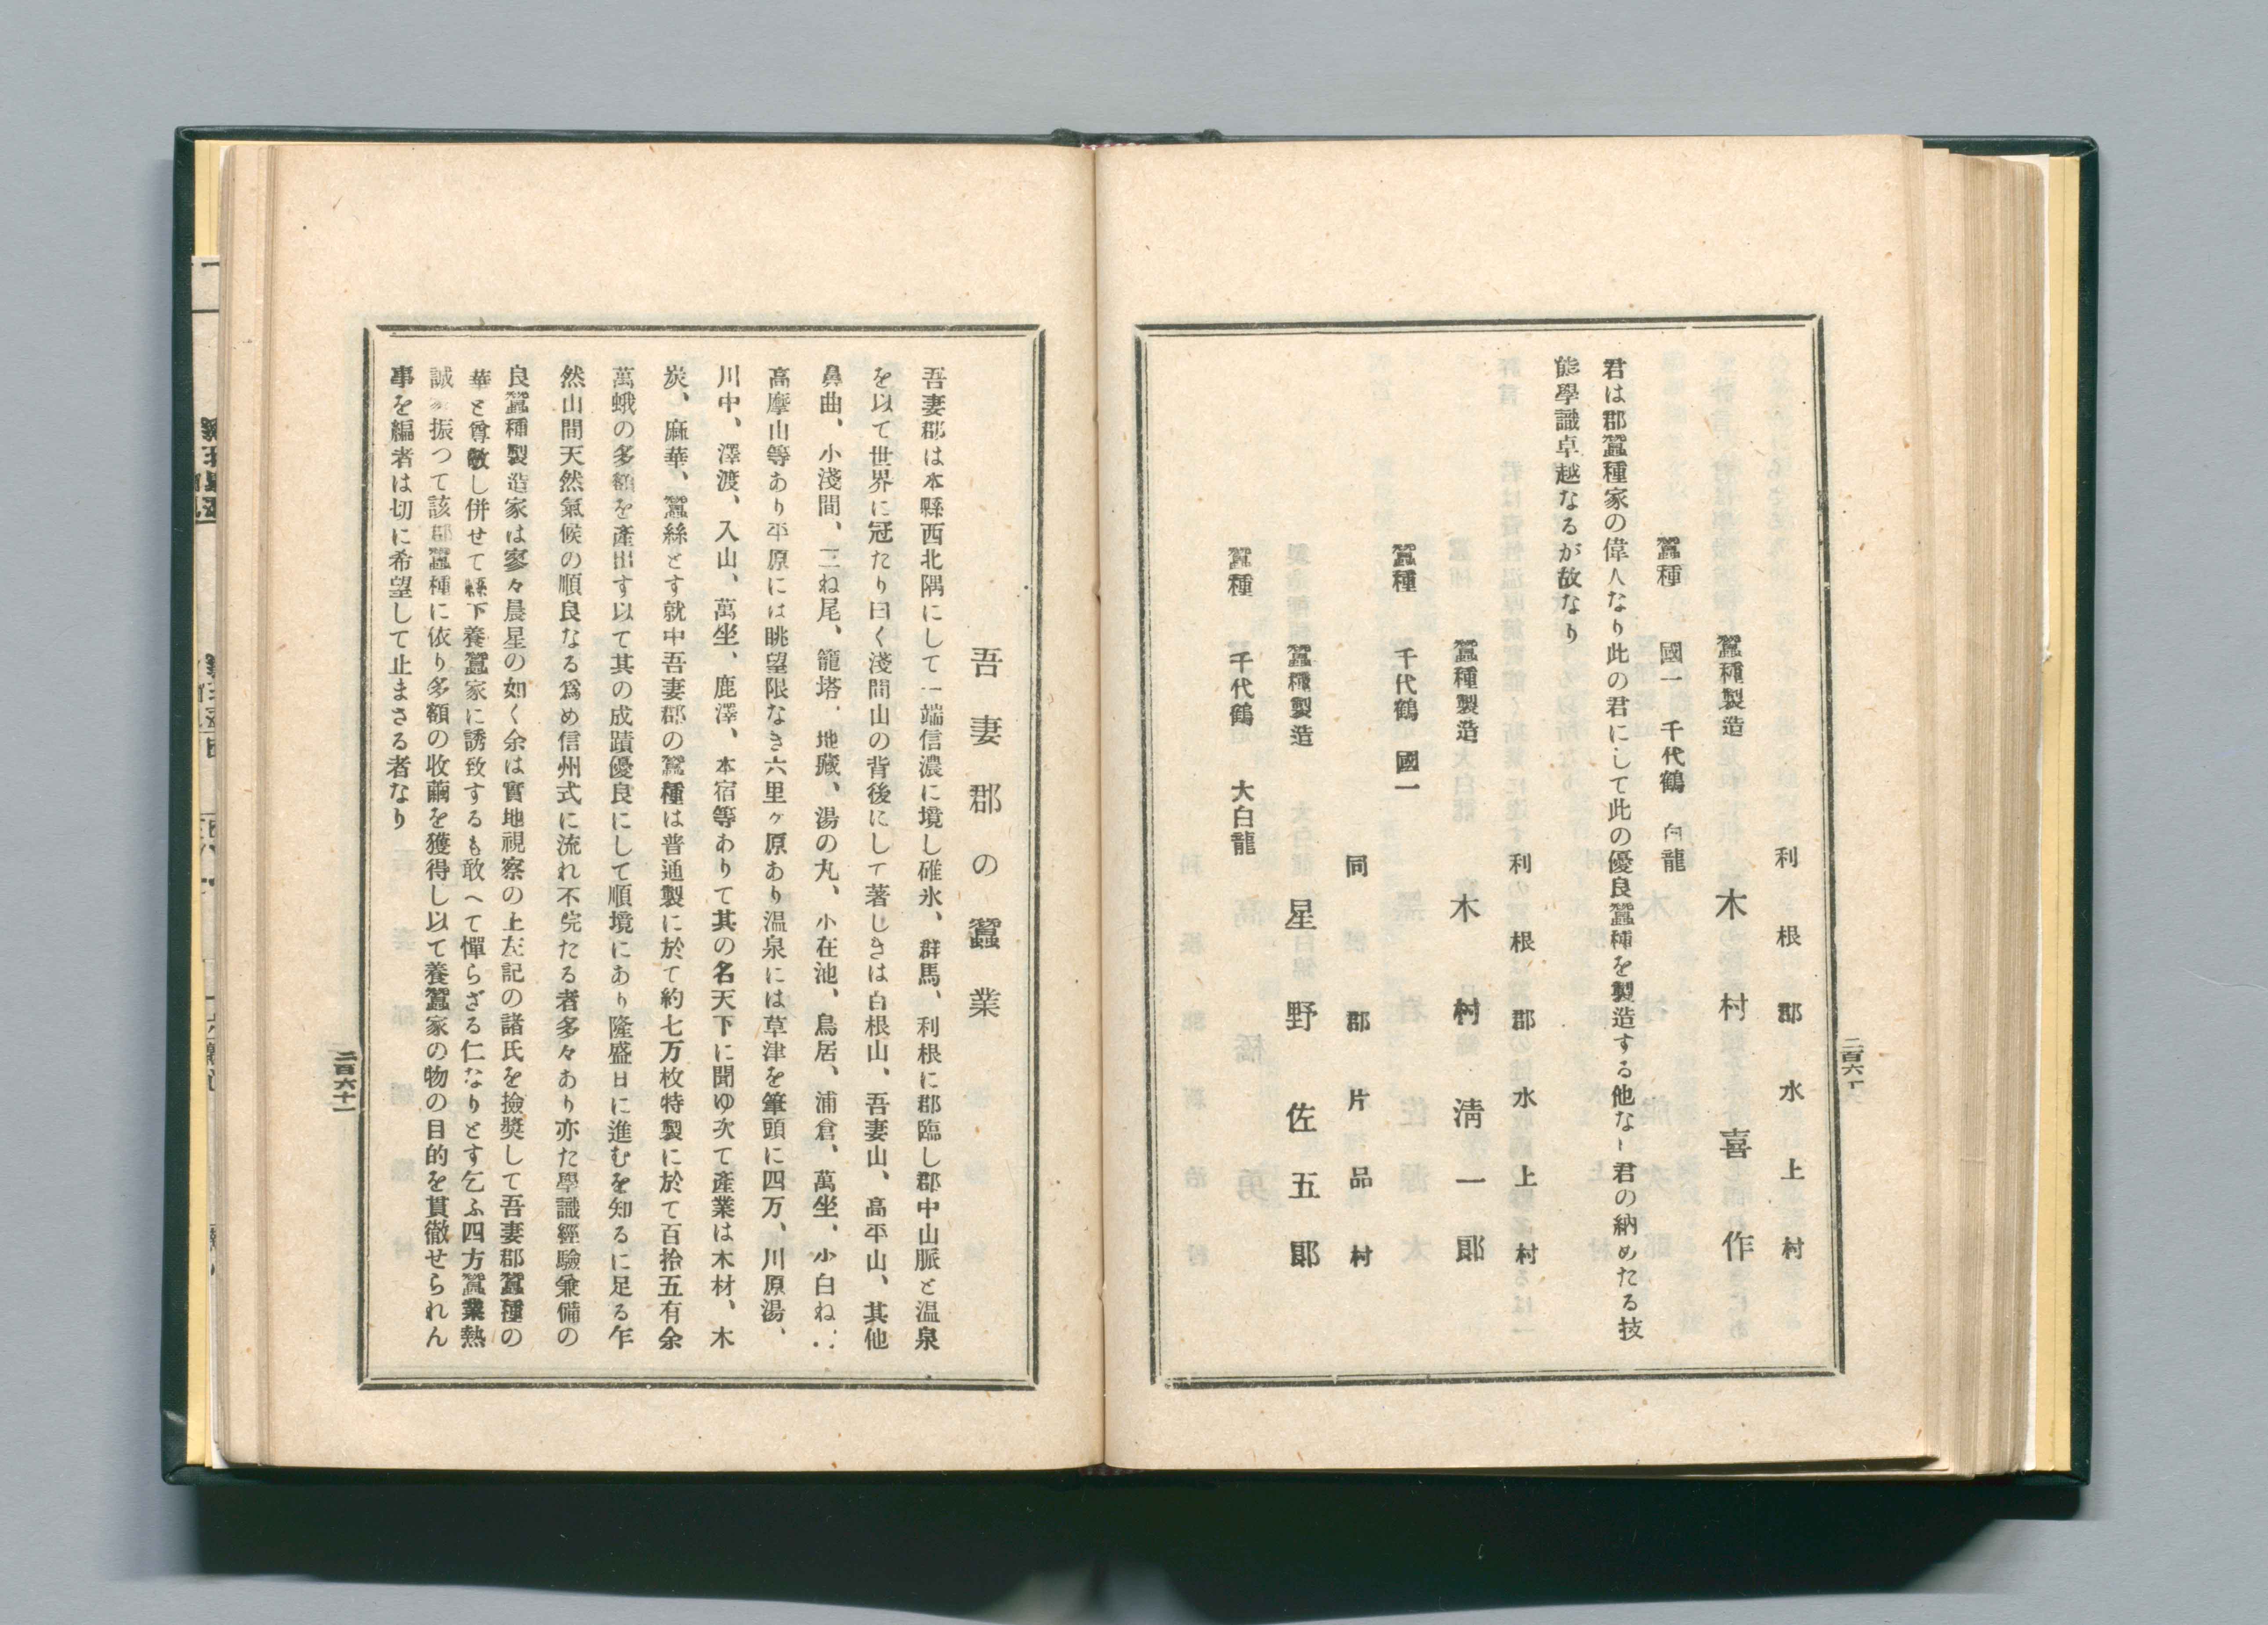 利根郡水上村
蠶種製造 木村喜作
蠶種 國一 千代鶴 白龍
君は郡蠶種家の偉人なり此の君にして此の優良蠶種を製造する他なし君の納めたる技
能學識卓越なるが故なり
利根郡水上村
蠶種製造 木村淸一郞
蠶種 千代鶴 國一
同郡片品村
蠶種製造 星野佐五郞
蠶種 千代鶴 大白龍
二百六十
吾妻郡の蠶業
吾妻郡は本縣西北隅にして一端信濃に境し碓氷、群馬、利根に郡臨し郡中山脈と温泉
を以て世界に冠たり曰く淺間山の背後にして著しきは白根山、吾妻山、高平山、其他
鼻曲、小淺間、三ね尾、籠塔、地藏、湯の丸、小在池、鳥居、浦倉、萬坐、小白ね、
高摩山等あり平原には眺望限なき六里ヶ原あり温泉には草津を筆頭に四万、川原湯、
川中、澤渡、入山、萬坐、鹿澤、本宿等ありて其の名天下に聞ゆ次て產業は木材、木
炭、麻華、蠶絲とす就中吾妻郡の蠶種は普通製に於て約七万枚特製に於て百拾五有余
萬蛾の多額を產出す以て其の成蹟優良にして順境にあり隆盛日に進むを知るに足る乍
然山間天然氣候の順良なる爲め信州式に流れ不完たる者多々あり亦た學識經驗兼備の
良蠶種製造家は寥々晨星の如く余は實地視察の上左記の諸氏を撿奬して吾妻郡蠶種の
華と尊敬し併せて縣下養蠶家に誘致するも敢へて憚らざる仁なりとす乞ふ四方蠶業熱
誠家振つて該郡蠶種に依り多額の收繭を獲得し以て養蠶家の物の目的を貫徹せられん
事を編者は切に希望して止まさる者なり
二百六十一